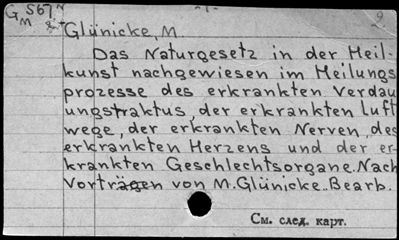 G 567
M
-1-
9
Glünicke, M.
Das Naturgesetz in der Heil-
kunst nachgewiesen im Heilungs
prozesse des erkrankten Verdau
ungstraktus, der erkrankten Luft
wege, der erkrankten Nerven, des
erkrankten Herzens und der er-
krankten Geschlechtsorgane. Nach
Vorträgen von M. Glünicke.. Bearb.
См. след. карт.